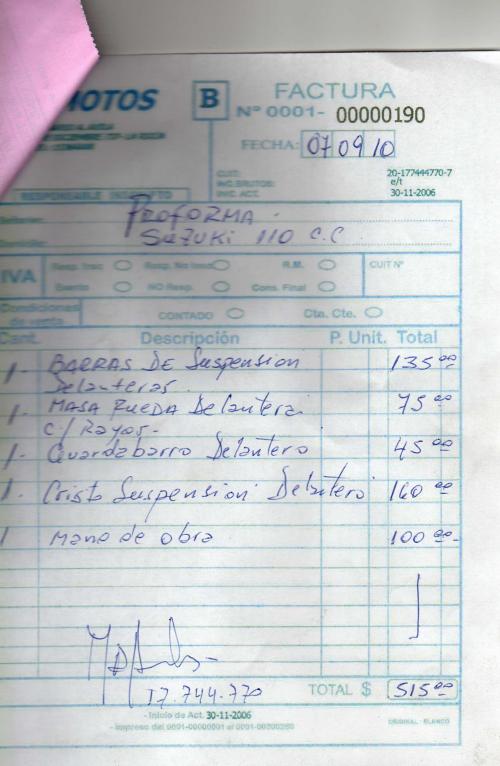 MOTOS
B
FACTURA
Nº 0001- 00000190
FECHA: 07 09 10
CUIT: 20-177444770-7
ING.BRUTOS: e/t
INIC. ACT. 30-11-2006
RESPONSABLE INSCRIPTO
PROFORMA
SUZUKI 110 C.C
IVA Resp. Insc Resp. No Insc R.M. CUIT Nº
Exento NO Resp. Cons. Final
Condiciones de venta CONTADO Cta. Cte.
Cant. Descripción P. Unit. Total
1- BARRAS DE Suspension 135 00
Delanteras.
1. MASA RUEDA Delantera 75 00
C/ Rayos-
1- Guardabarro Delantero 45 00
1. Cristo Suspension Delantero 160 00
1 Mano de obra 100 00-
17.744.770
TOTAL $ 515 00
- Inicio de Act. 30-11-2006
- Impreso del 0001-00000001 al 0001-00000250
ORIGINAL - BLANCO